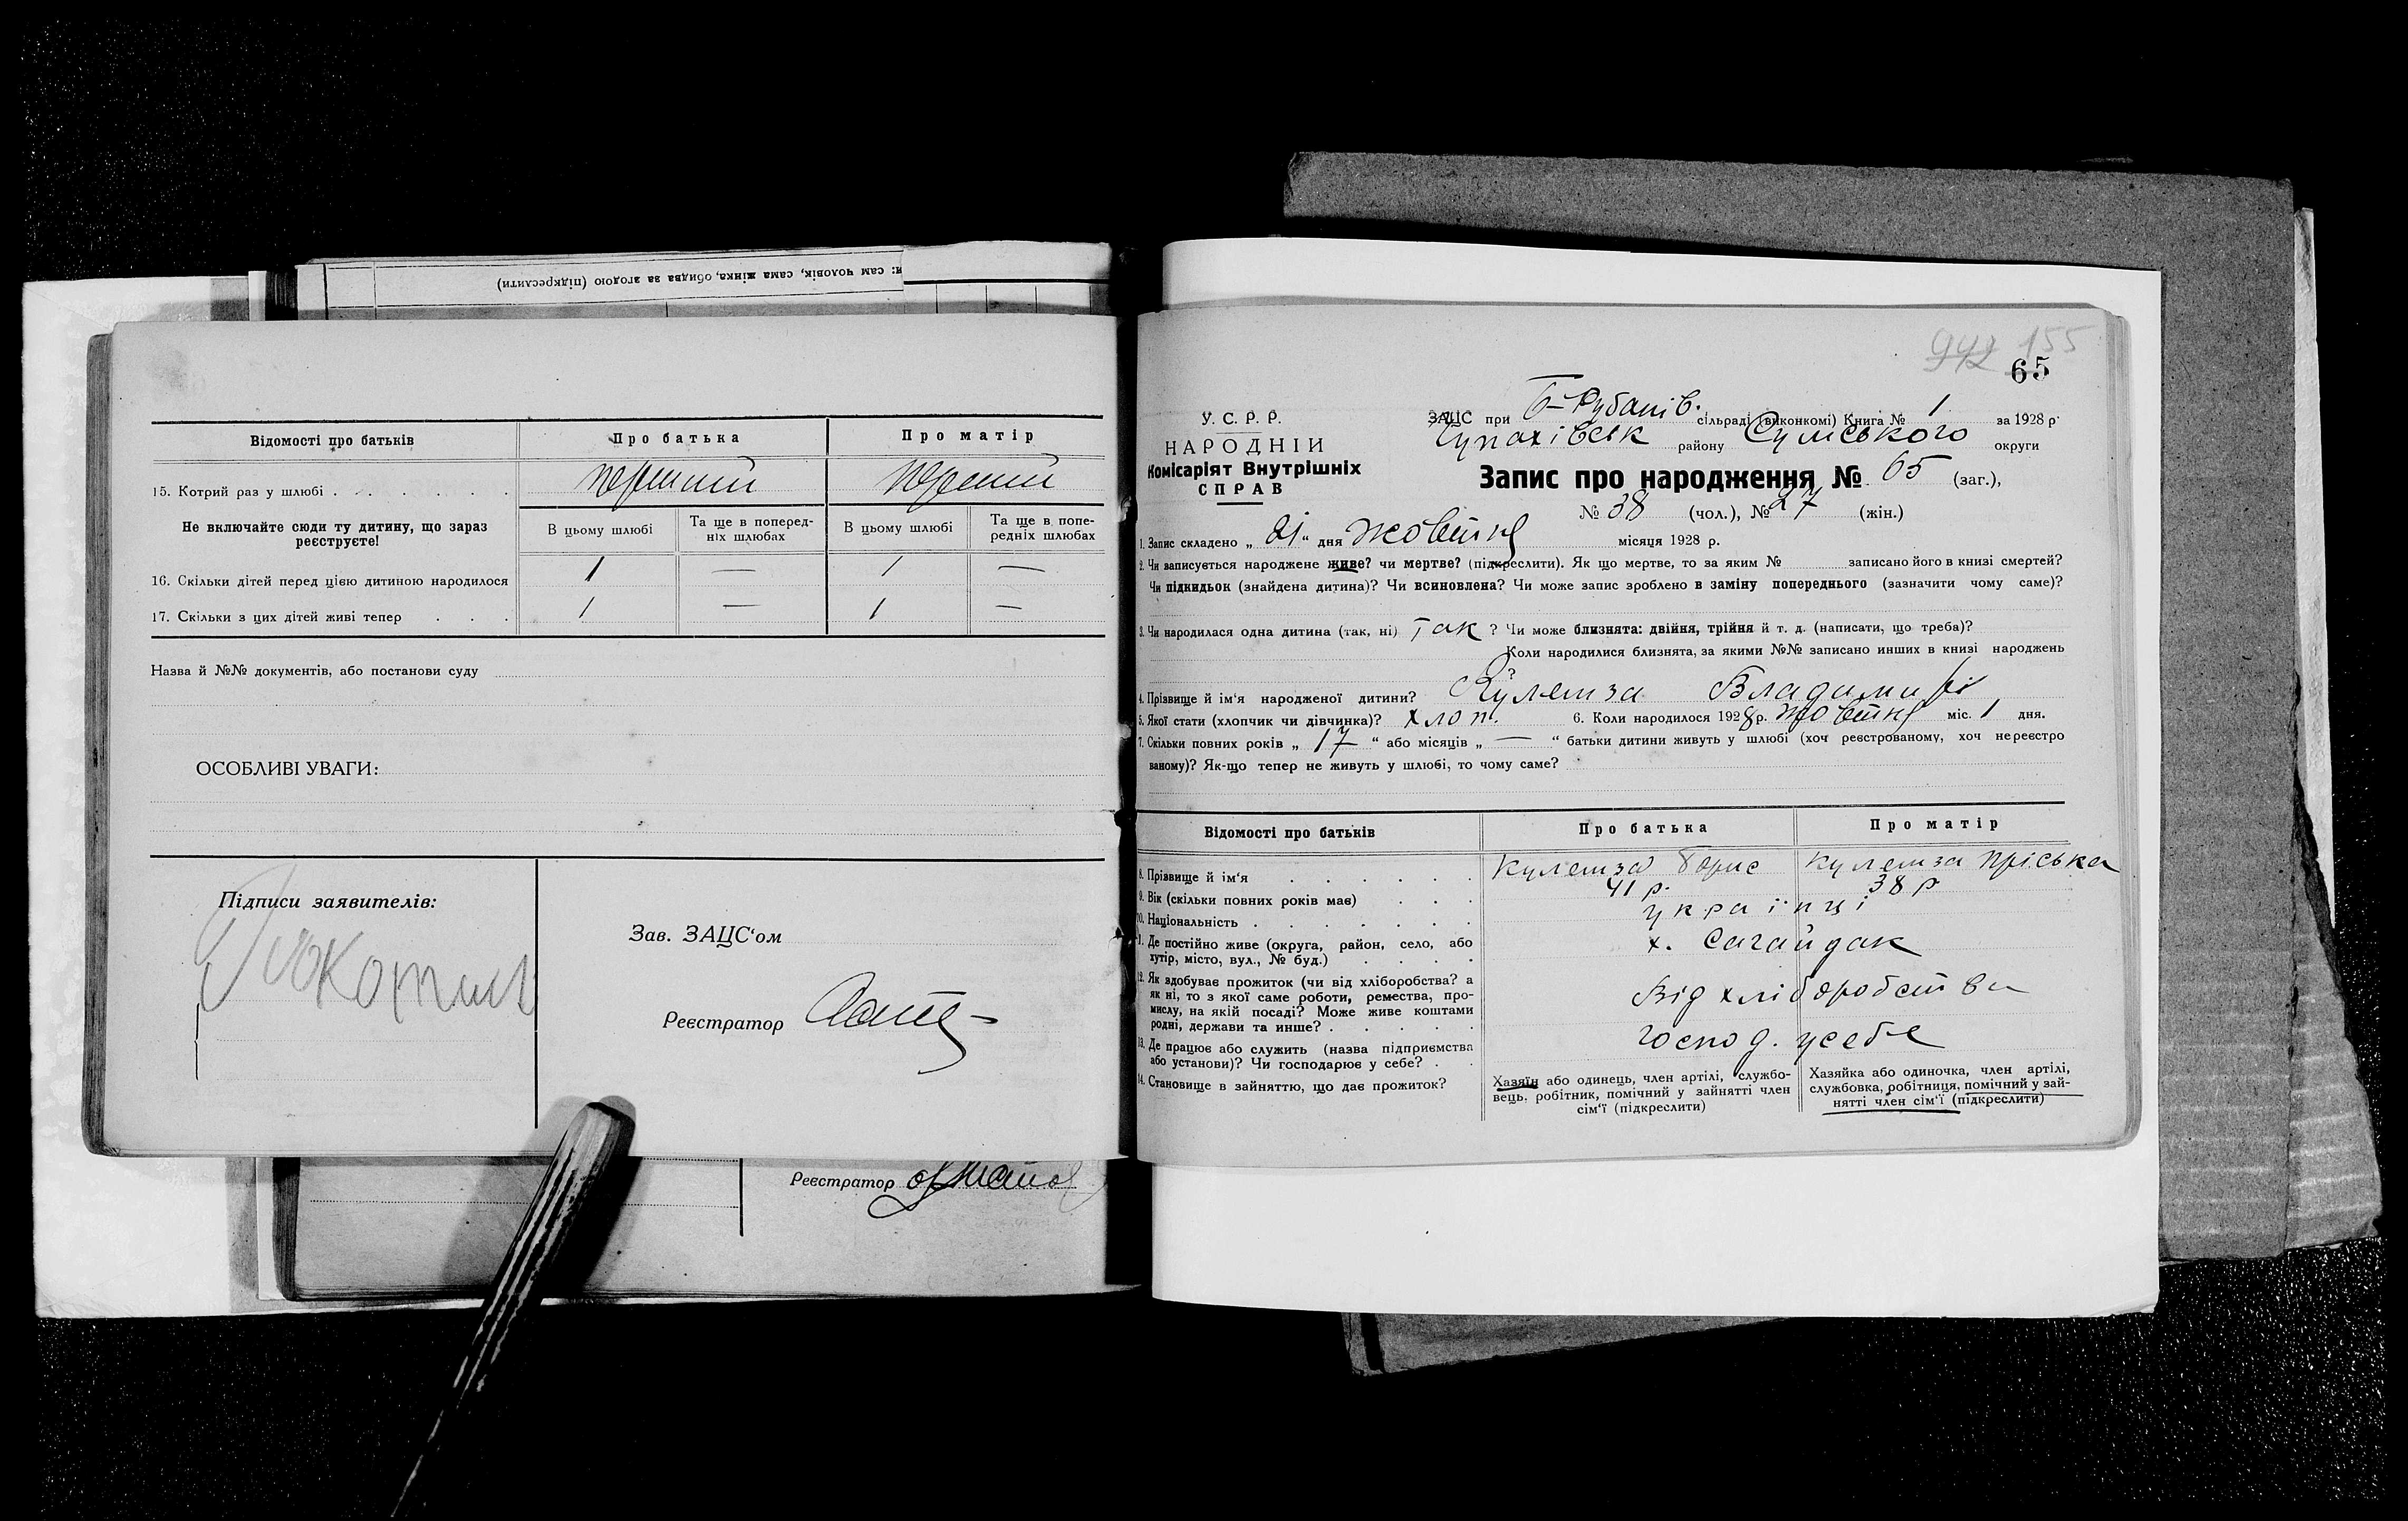 и: сам чоловік, сама жінка, обидва за згодою (підкреслити)
Відомості про батьків
Про батька
Про матір
15. Котрий раз у шлюбі . . . . . . .
перший
перший
Не включайте сюди ту дитину, що зараз реєструєте!
В цьому шлюбі
Та ще в поперед-
ніх шлюбах
В цьому шлюбі
Та ще в попе-
редніх шлюбах
16. Скільки дітей перед цією дитиною народилося
1 — 1 —
17. Скільки з цих дітей живі тепер . . .
1 — 1 —
Назва й №№ документів, або постанови суду
ОСОБЛИВІ УВАГИ:
Підписи заявителів:
Зав. ЗАЦС‘ом
Реєстратор
Реєстратор
942 155
65
У. С. Р. Р.
НАРОДНІЙ
Комісаріят Внутрішніх
СПРАВ
ЗАЦС при Б-Рубанів. сільраді (виконкомі) Книга № 1 за 1928 р.
Чупахівськ району Сумського округи
Запис про народження № 65 (заг.),
№ 38 (чол.), № 27 (жін.)
1. Запис складено „ 21 “ дня жовтня місяця 1928 р.
2. Чи записується народжене живе? чи мертве? (підкреслити). Як що мертве, то за яким № записано його в книзі смертей?
Чи підкидьок (знайдена дитина)? Чи всиновлена? Чи може запис зроблено в заміну попереднього (зазначити чому саме)?
3. Чи народилася одна дитина (так, ні) Так ? Чи може близнята: двійня, трійня й т. д. (написати, що треба)?
Коли народилися близнята, за якими №№ записано инших в книзі народжень
4. Прізвище й ім‘я народженої дитини? Кулемза Владимир
5. Якої стати (хлопчик чи дівчинка)? хлоп. 6. Коли народилося 1928 р. жовтня міс. 1 дня.
7. Скільки повних років „ 17 “ або місяців „ — “ батьки дитини живуть у шлюбі (хоч реєстрованому, хоч нереєстро
ваному)? Як-що тепер не живуть у шлюбі, то чому саме?
Відомості про батьків
Про батька
Про матір
8. Прізвище й ім‘я . . . . . .
Кулемза Борис
Кулемза Пріська
9. Вік (скільки повних років має) . . .
41 р.
38 р
10. Національність . . . . . . .
українці
11. Де постійно живе (округа, район, село, або
хутір, місто, вул., № буд.) . . . .
х. Сагайдак
12. Як здобуває прожиток (чи від хліборобства? а
як ні, то з якої саме роботи, ремества, про-
мислу, на якій посаді? Може живе коштами
родні, держави та инше? . . . . .
Від хліборобства
13. Де працює або служить (назва підприємства
або установи)? Чи господарює у себе? . .
Господ. у себе
14. Становище в зайняттю, що дає прожиток?
Хазяїн або одинець, член артілі, службо-
вець, робітник, помічний у зайнятті член
сім‘ї (підкреслити)
Хазяйка або одиночка, член артілі,
службовка, робітниця, помічний у зай-
нятті член сім‘ї (підкреслити)